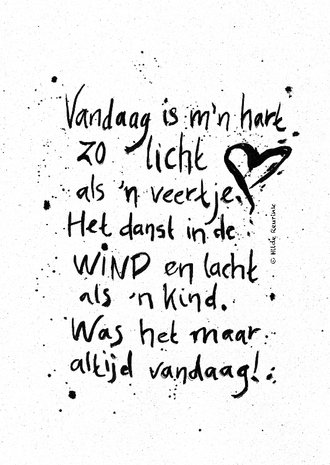 Vandaag is m'n hart
zo licht
als 'n veertje.
Het danst in de
WIND en lacht
als 'n kind.
Was het maar
altijd vandaag!
© Hilde Reurink